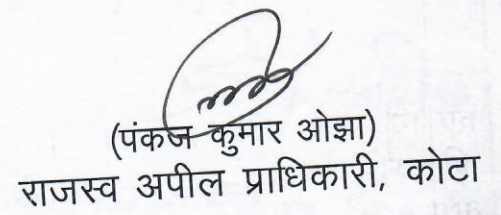 (पंकज कुमार ओझा)
राजस्व अपील प्राधिकारी, कोटा